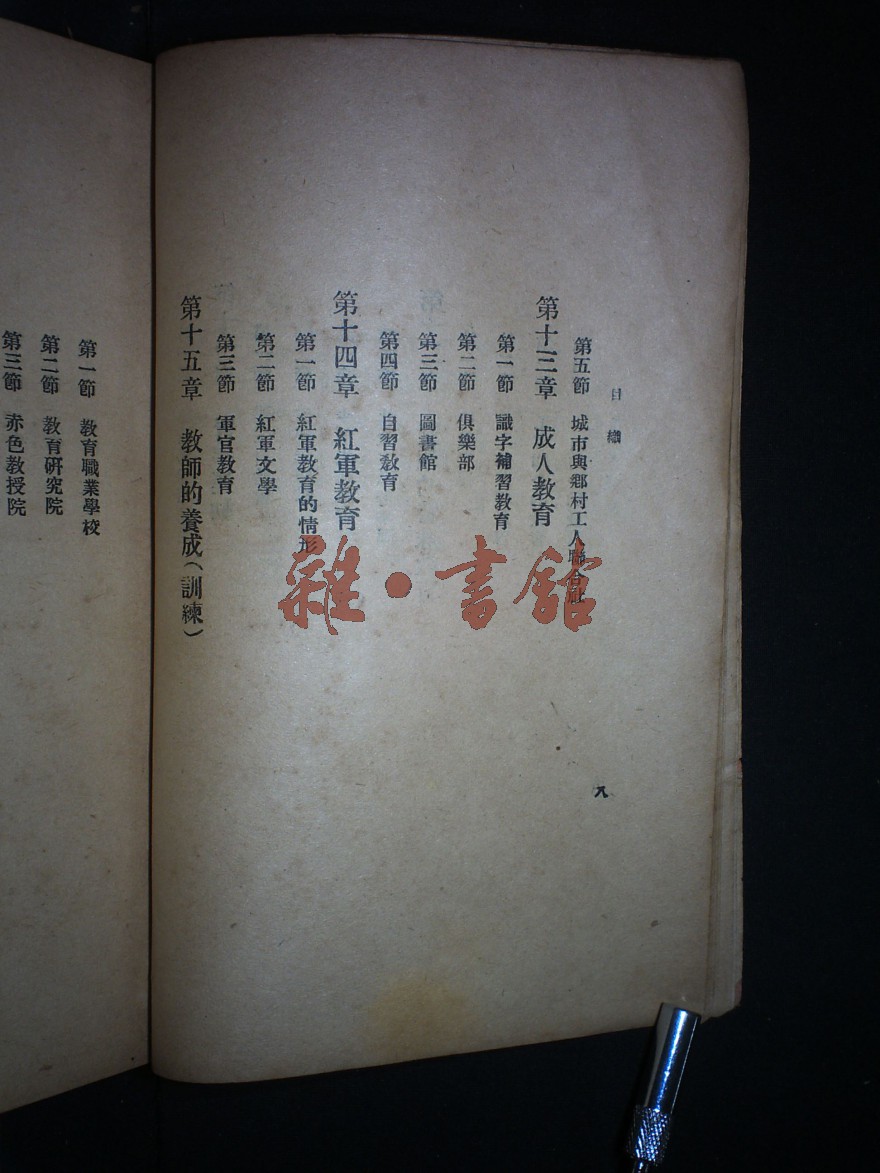 目錄
第五節 城市與鄉村工人聯合社
第十三章 成人教育
第一節 識字補習教育
第二節 俱樂部
第三節 圖書館
第四節 自習教育
第十四章 紅軍教育
第一節 紅軍教育的情形
第二節 紅軍文學
第三節 軍官教育
第十五章 教師的養成(訓練)
八
第一節 教育職業學校
第二節 教育研究院
第三節 赤色教授院
雜·書館